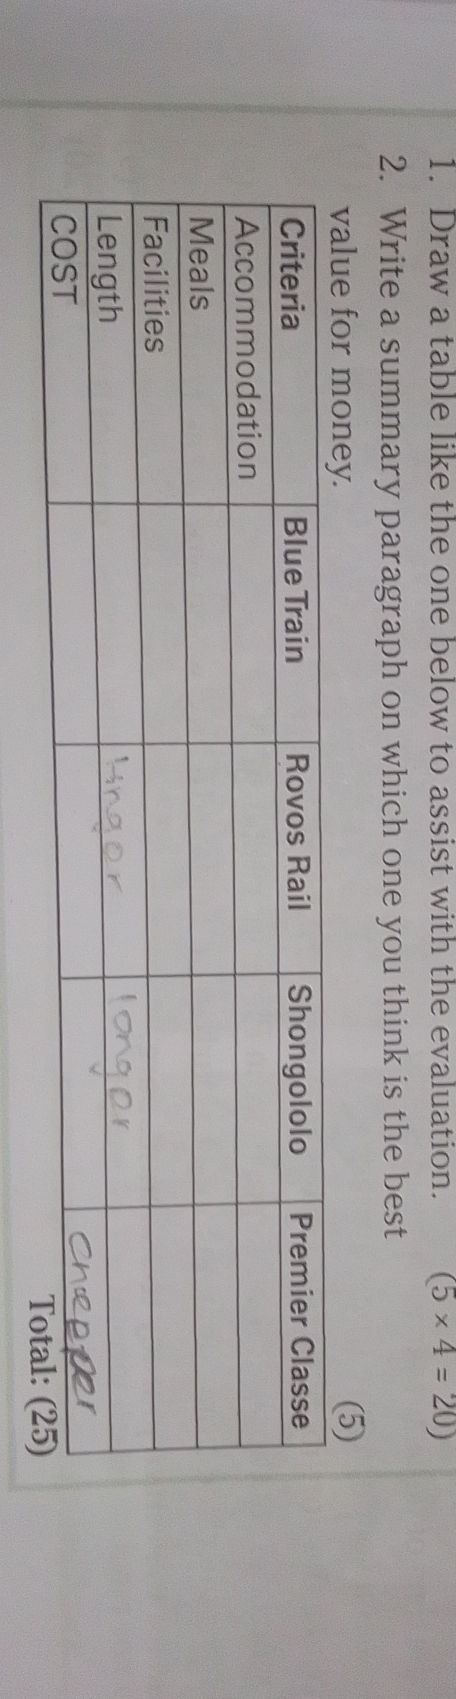 1. Draw a table like the one below to assist with the evaluation. (5 × 4 = 20)
2. Write a summary paragraph on which one you think is the best
value for money. (5)
Criteria Blue Train Rovos Rail Shongololo Premier Classe
Accommodation
Meals
Facilities
Length longor longor
COST cheapper
Total: (25)